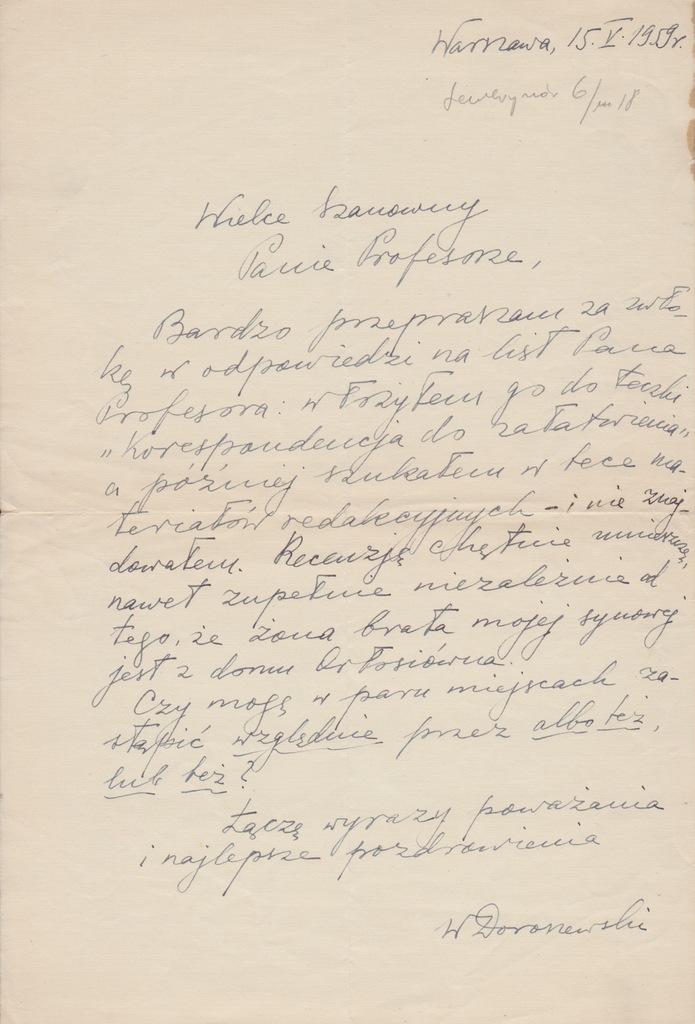 Warszawa, 15.V.1959r.
6/m 18
Wielce Szanowny
Panie Profesorze,
Bardzo przepraszam za zwło-
kę w odpowiedzi na list Pana
Profesora: włożyłem go do teczki
"Korespondencja do załatwienia"
a później szukałem w tece ma-
teriałów redakcyjnych - i nie znaj-
dowałem. Recenzję chętnie umieszczę,
nawet zupełnie niezależnie od
tego, że żona brata mojej synowej
jest z domu Orłosiówna.
Czy mogę w paru miejscach za-
stąpić względnie przez albo też,
lub też?
Łączę wyrazy poważania
i najlepsze pozdrowienia
W Doroszewski